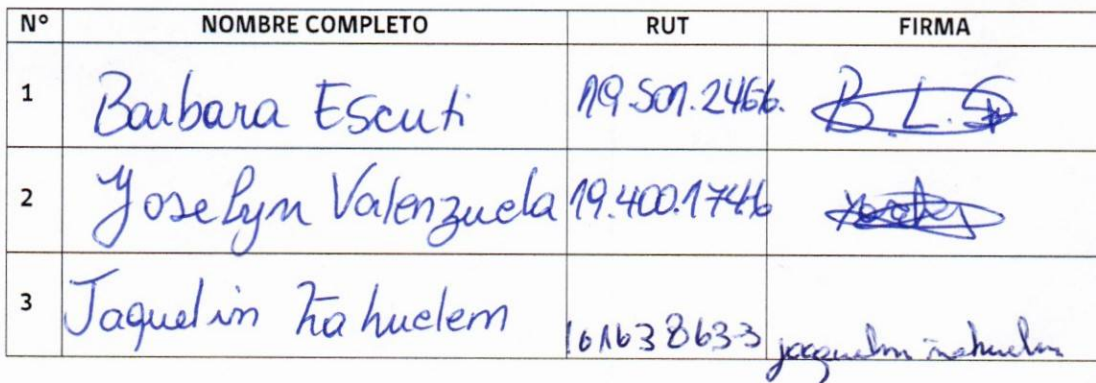 N° NOMBRE COMPLETO RUT FIRMA
1 Barbara Escuti 19.501.2466. B.L.S
2 Yoselyn Valenzuela 19.400.1746
3 Jaquelin Ñahuelem 161638633 jaquelin ñahuelm